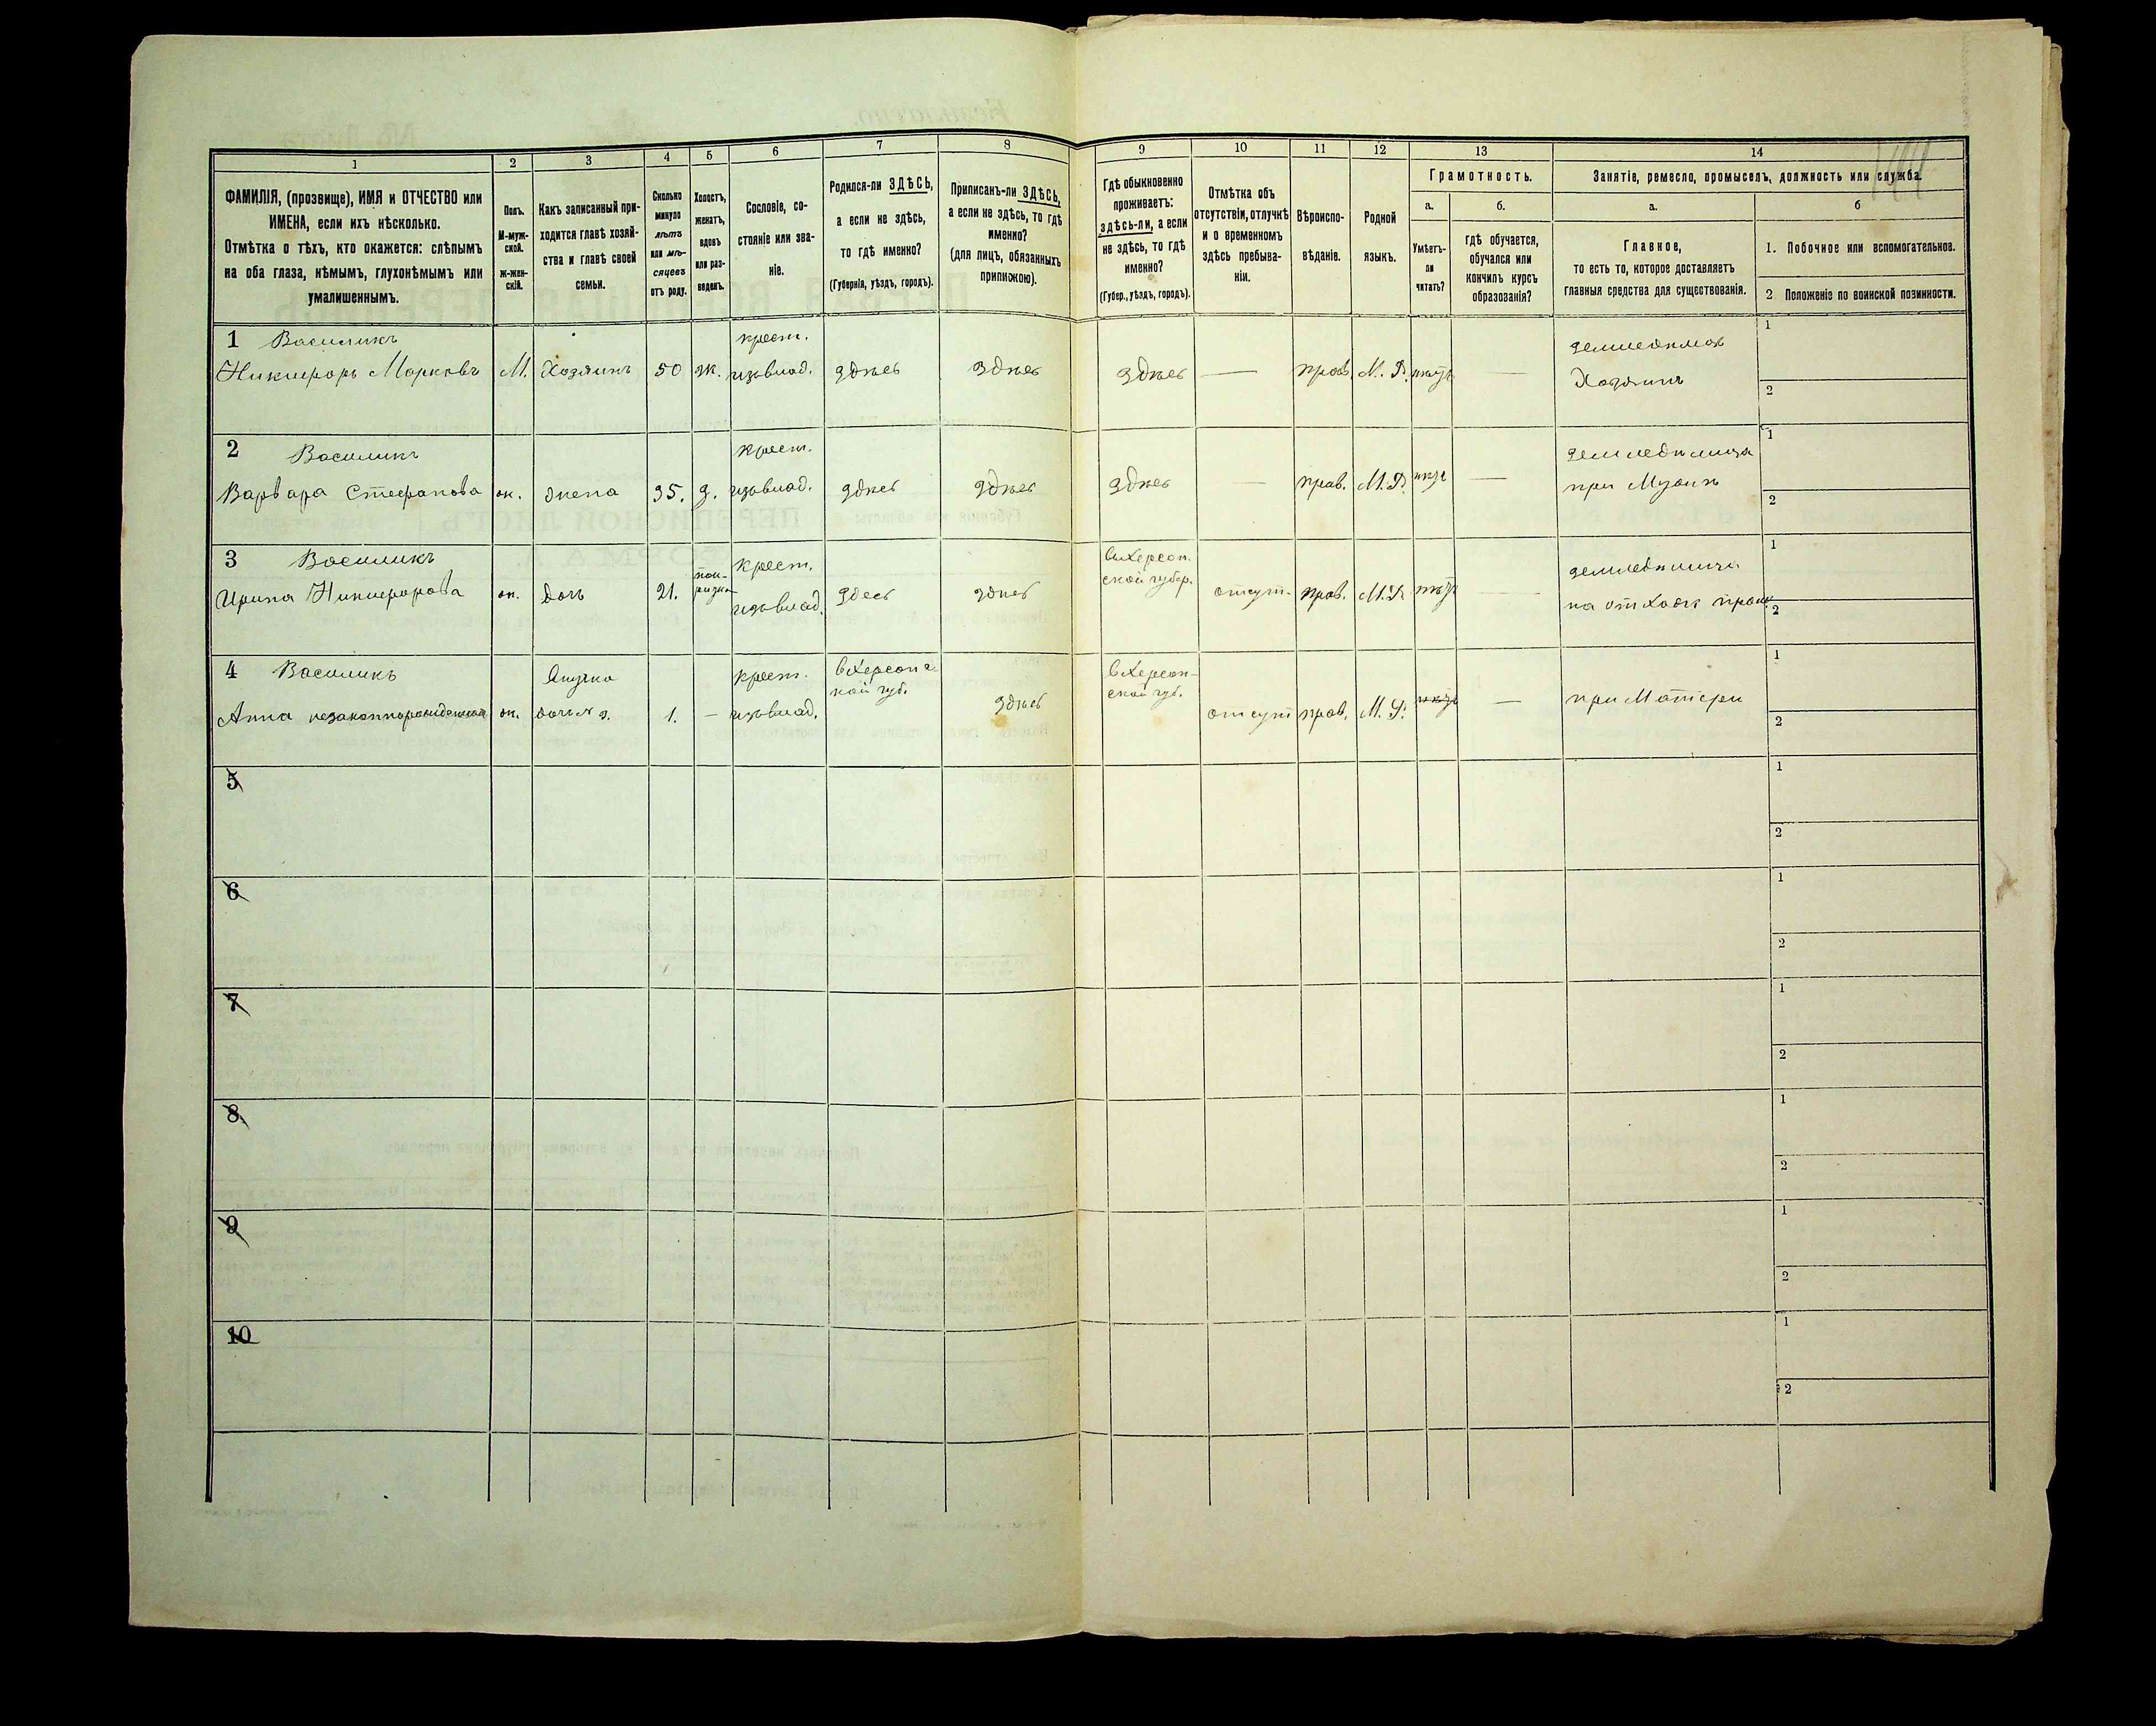 1 2 3 4 5 6 7 8 9 10 11 12 13 14
ФАМИЛІЯ, (прозвище), ИМЯ и ОТЧЕСТВО или
ИМЕНА, если ихъ нѣсколько.
Отмѣтка о тѣхъ, кто окажется: слѣпымъ
на оба глаза, нѣмымъ, глухонѣмымъ или
умалишеннымъ.
Полъ.
М-муж-
ской.
Ж-жен-
скій.
Какъ записанный при-
ходится главѣ хозяй-
ства и главѣ своей
семьи.
Сколько
минуло
лѣтъ
или мѣ-
сяцевъ
отъ роду.
Холостъ,
женатъ,
вдовъ
или раз-
веденъ.
Сословіе, со-
стояніе или зва-
ніе.
Родился-ли ЗДѢСЬ,
а если не здѣсь,
то гдѣ именно?
(Губернія, уѣздъ, городъ).
Приписанъ-ли ЗДѢСЬ,
а если не здѣсь, то гдѣ
именно?
(для лицъ, обязанныхъ
припискою).
Гдѣ обыкновенно
проживаетъ:
здѣсь-ли, а если
не здѣсь, то гдѣ
именно?
(Губер., уѣздъ, городъ).
Отмѣтка объ
отсутствіи, отлучкѣ
и о временномъ
здѣсь пребыва-
ніи.
Вѣроиспо-
вѣданіе.
Родной
языкъ.
Грамотность.
а. б.
Умѣетъ-
ли
читать?
гдѣ обучается,
обучался или
кончилъ курсъ
образованія?
Занятіе, ремесло, промыселъ, должность или служба.
а. б
Главное,
то есть то, которое доставляетъ
главныя средства для существованія.
1. Побочное или вспомогательное.
2 Положеніе по воинской повинности.
1 Василикъ крест. земледѣлія 1
Никифоръ Марковъ М. Хозяинъ 50 ж. изъвлад. здѣсь здѣсь здѣсь — прав. М. Р. нѣтъ — Хозяинъ
2
2 Василикъ крест. земледѣлица 1
Варвара Стефанова ж. жена 35. з. изъвлад. здѣсь здѣсь здѣсь — прав. М. Р. нѣтъ — при Мужѣ
2
3 Василикъ крест. въХерсон- земледѣлица 1
ской губер.
Ирина Никифорова ж. дочь 21. изъвлад. здесь здѣсь отсут. прав. М. Р. нѣтъ — на отходѣ
2
4 Василикъ Внучка крест. въХерсонс- въХерсон- 1
кой губ. ской губ.
Анна незаконнорожденная ж. дочь № 3. 1. — изъвлад. здѣсь отсут прав. М. Р. нѣтъ — при Матери
2
5 1
2
6 1
2
7 1
2
8 1
2
9 1
2
10 1
2